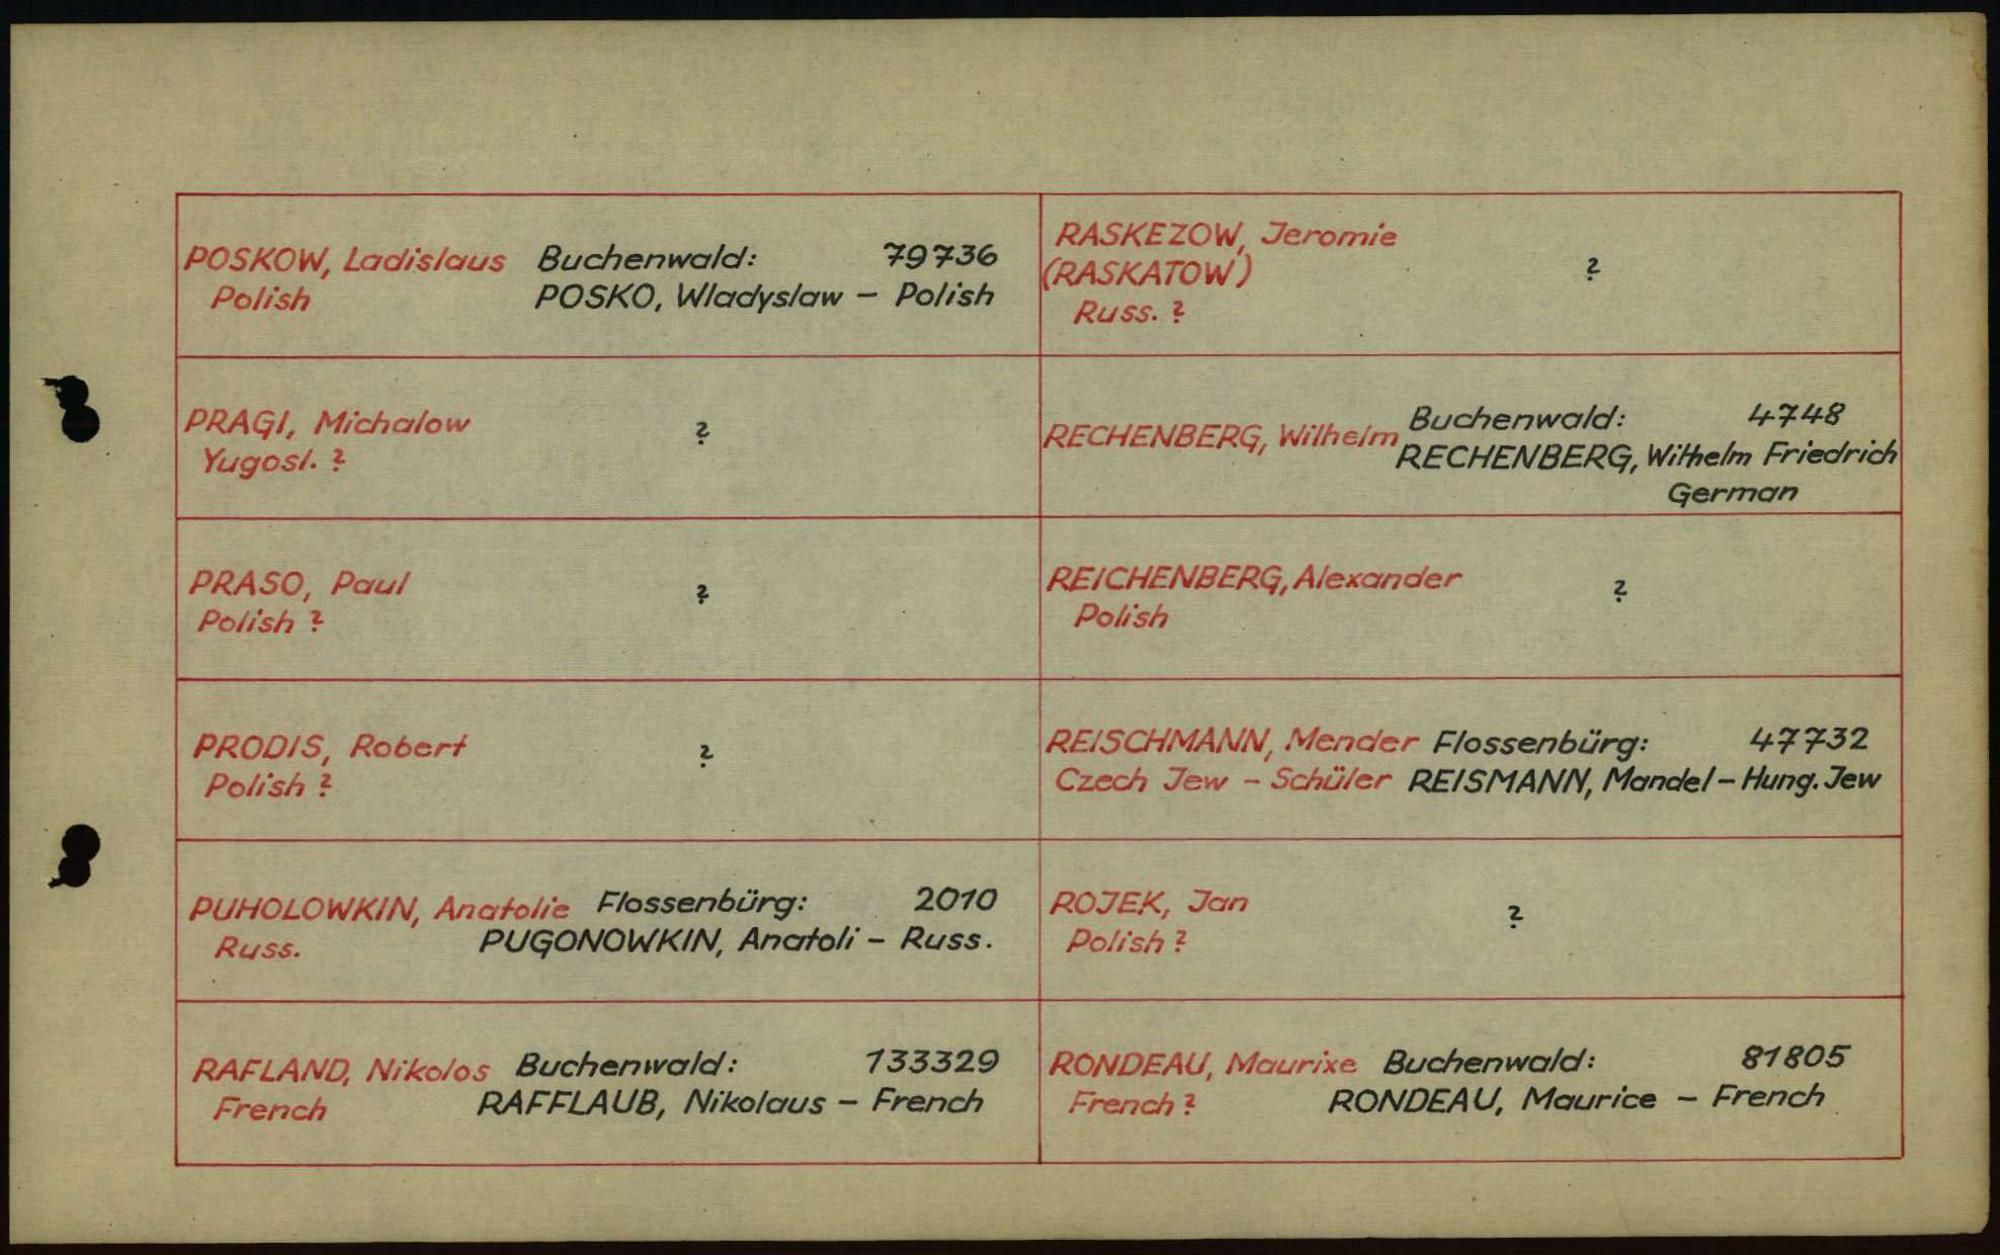 POSKOW, Ladislaus Buchenwald: 79736
Polish POSKO, Wladyslaw – Polish
PRAGI, Michalow ?
Yugosl. ?
PRASO, Paul ?
Polish ?
PRODIS, Robert ?
Polish ?
PUHOLOWKIN, Anatolie Flossenbürg: 2010
Russ. PUGONOWKIN, Anatoli – Russ.
RAFLAND, Nikolos Buchenwald: 133329
French RAFFLAUB, Nikolaus – French
RASKEZOW, Jeromie
(RASKATOW) ?
Russ. ?
Buchenwald: 4748
RECHENBERG, Wilhelm
RECHENBERG, Wilhelm Friedrich
German
REICHENBERG, Alexander ?
Polish
REISCHMANN, Mender Flossenbürg: 47732
Czech Jew – Schüler REISMANN, Mandel – Hung. Jew
ROJEK, Jan ?
Polish ?
RONDEAU, Maurixe Buchenwald: 81805
French ? RONDEAU, Maurice – French